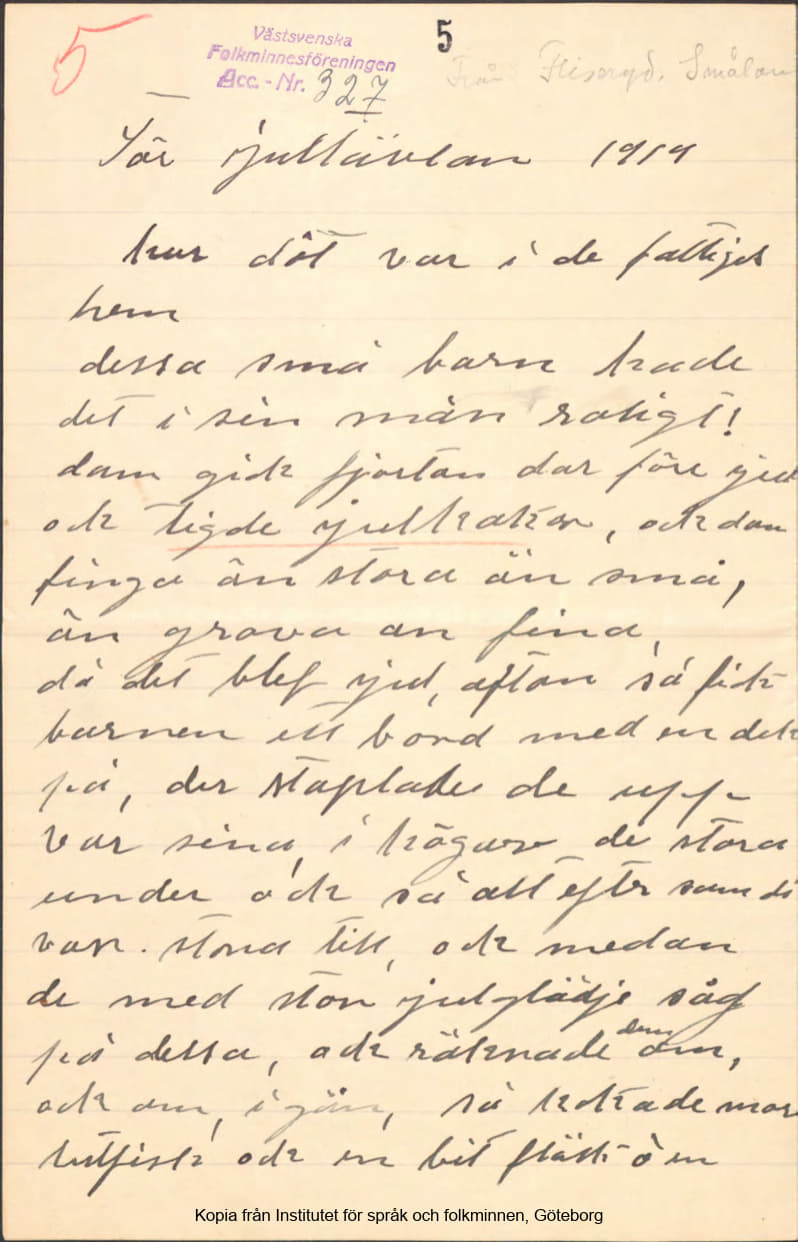 5
Västsvenska
Folkminnesföreningen
Acc. - Nr. 327
5
Från Fliseryd. Småland
För jultävlan 1919
hur dôt var i de fattiges
hem
dessa små barn hade
det i sin mån roligt!
dom gick fjortan dar före jul
ock tigde julkakor, ock dom
finga än stora än små,
än grova an fina,
då det blef jul, afton så fick
barnen ett bord med en duk
på, der staplades de upp
var sina, i högar de stora
under ock så allt efter som di
var stora till, ock medan
de med stor julglädje såg
på dessa, ock räknade dem om,
ock om, igän, så kokade mor
lutfisk ock en bit fläsk ô en
Kopia från Institutet för språk och folkminnen, Göteborg